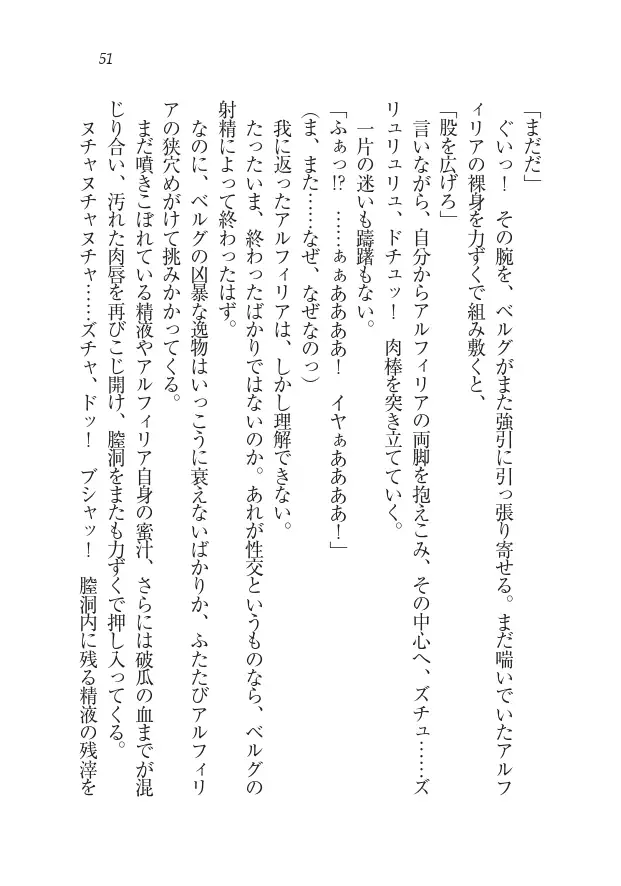 51
「まだだ」
ぐいっ！　その腕を、ベルグがまた強引に引っ張り寄せる。まだ喘いでいたアルフ
ィリアの裸身を力ずくで組み敷くと、
「股を広げろ」
言いながら、自分からアルフィリアの両脚を抱えこみ、その中心へ、ズチュ……ズ
リュリュリュ、ドチュッ！　肉棒を突き立てていく。
一片の迷いも躊躇もない。
「ふぁっ!?　……ぁぁああああ！　イヤぁああああ！」
（ま、また……なぜ、なぜなのっ）
我に返ったアルフィリアは、しかし理解できない。
たったいま、終わったばかりではないのか。あれが性交というものなら、ベルグの
射精によって終わったはず。
なのに、ベルグの凶暴な逸物はいっこうに衰えないばかりか、ふたたびアルフィリ
アの狭穴めがけて挑みかかってくる。
まだ噴きこぼれている精液やアルフィリア自身の蜜汁、さらには破瓜の血までが混
じり合い、汚れた肉唇を再びこじ開け、膣洞をまたも力ずくで押し入ってくる。
ヌチャヌチャヌチャ……ズチャ、ドッ！　ブシャッ！　膣洞内に残る精液の残滓を